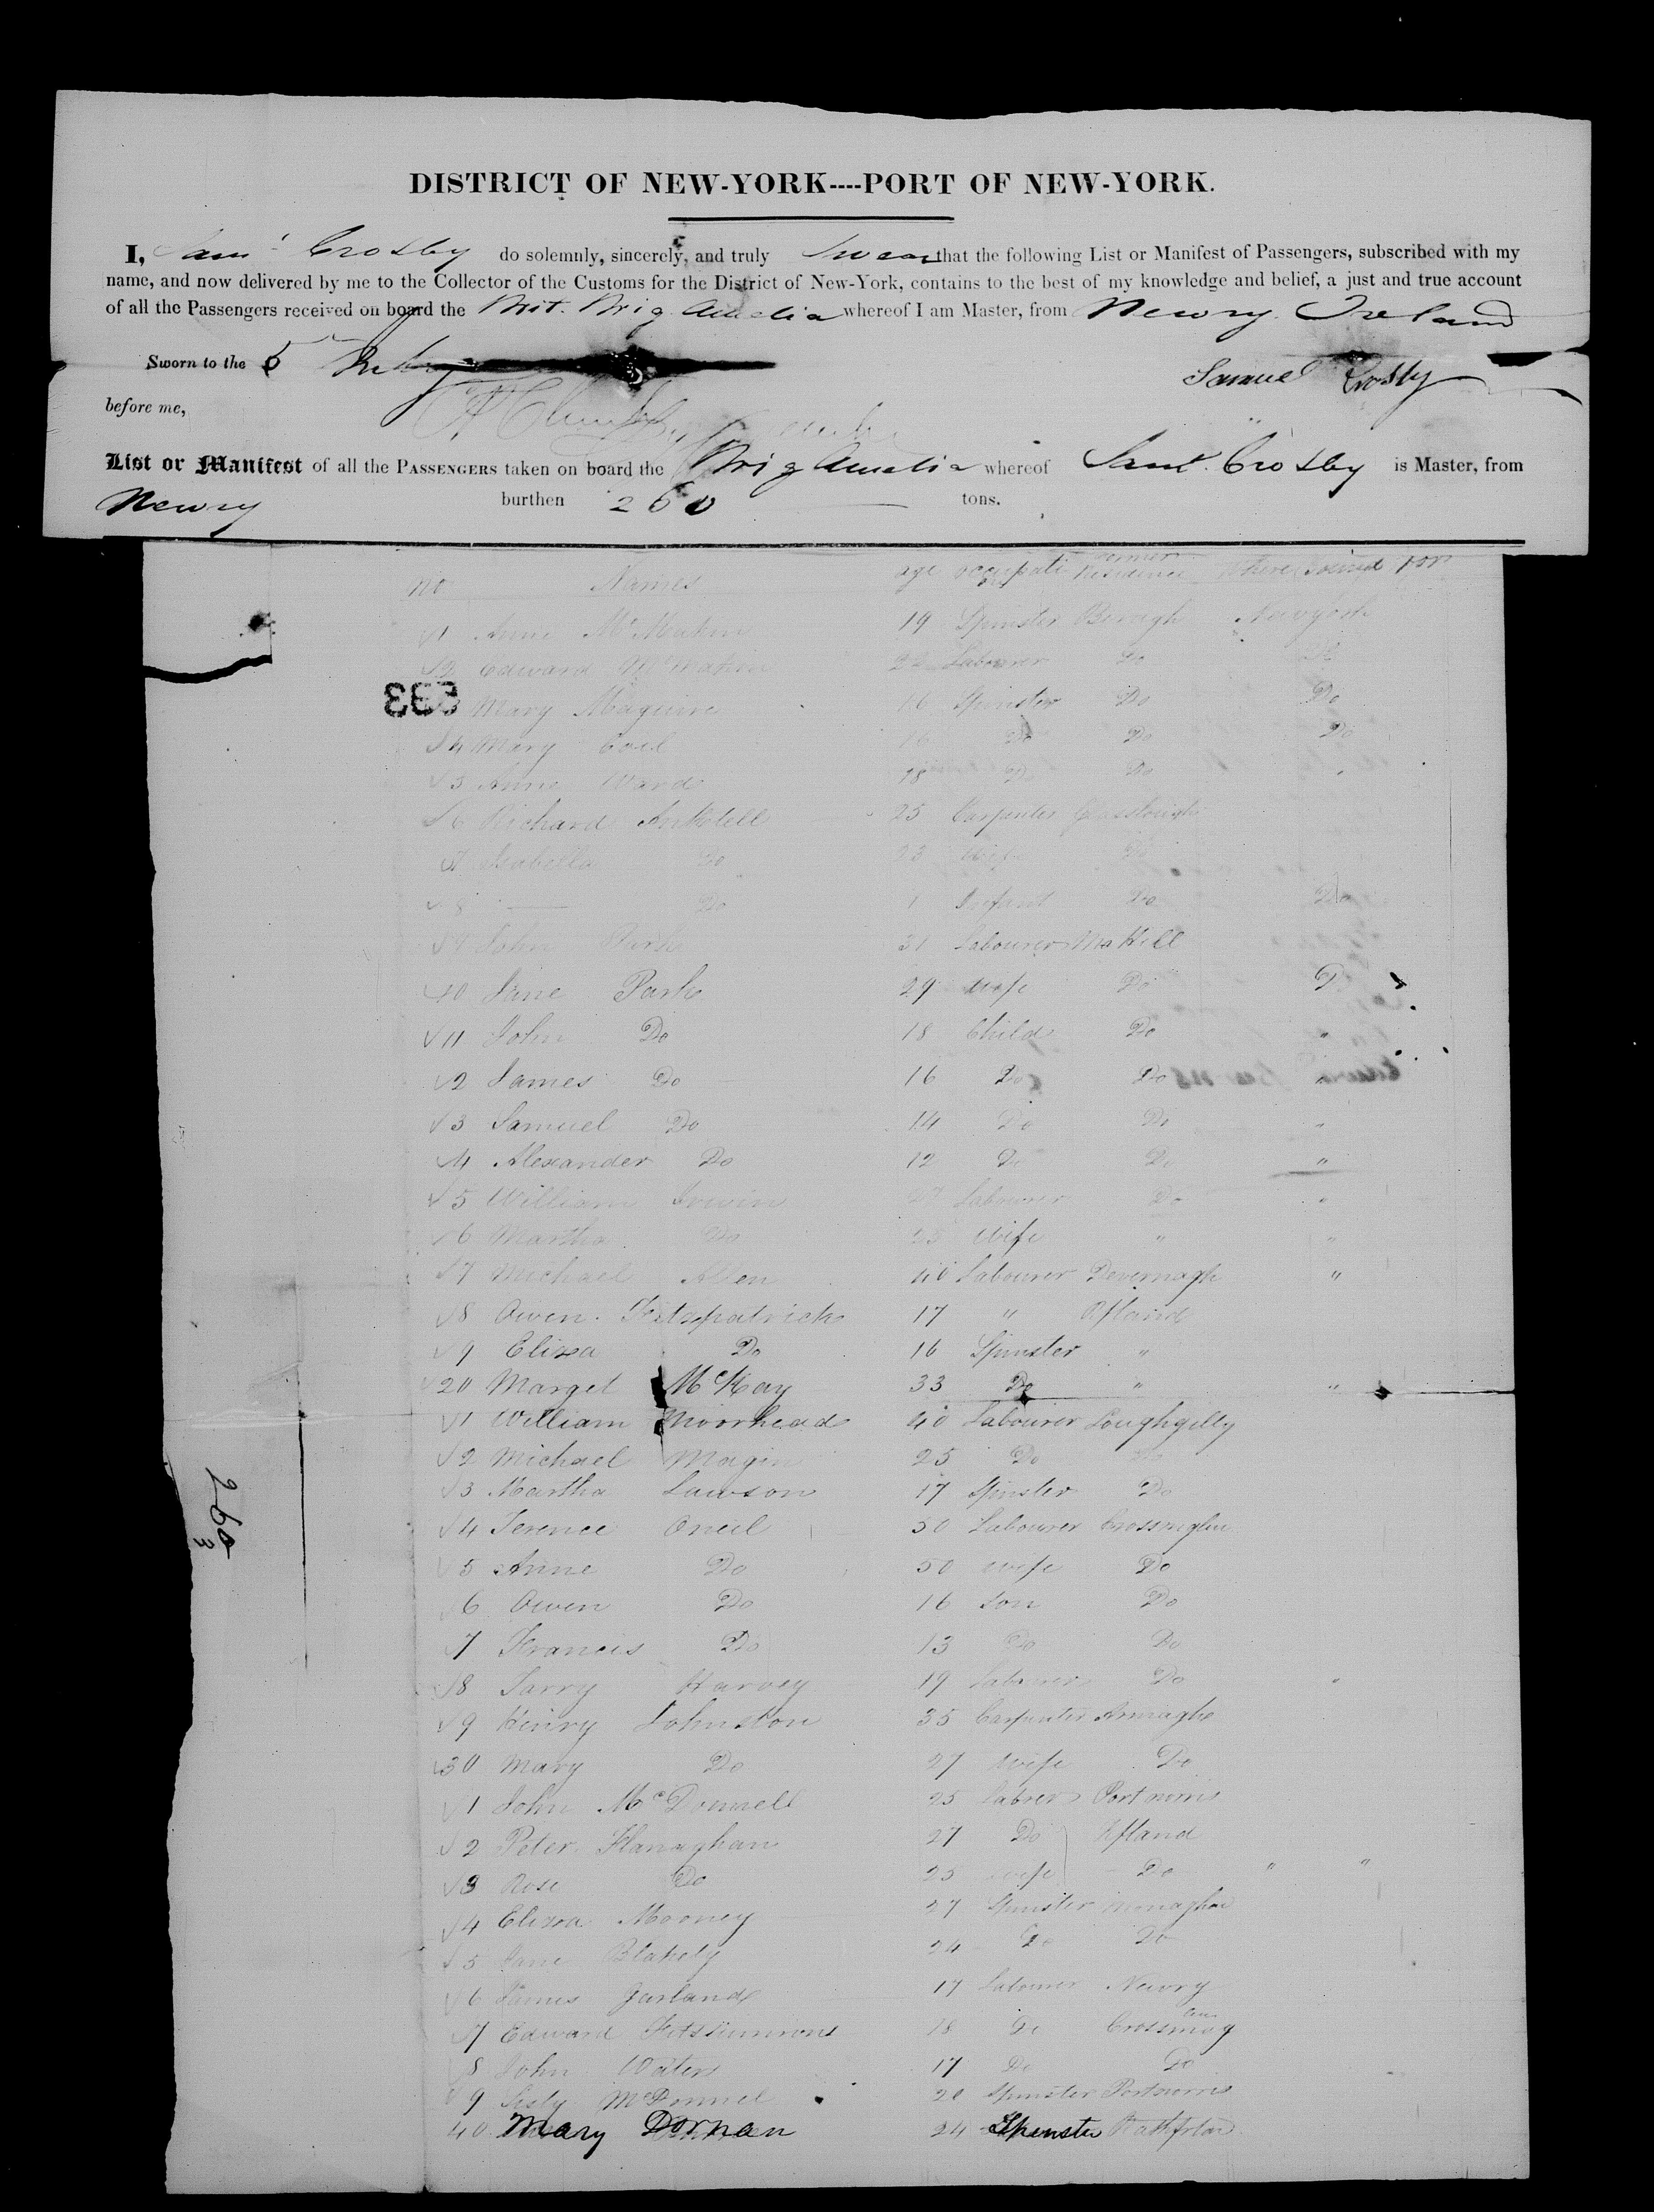 DISTRICT OF NEW-YORK----PORT OF NEW-YORK.
I, Sam' Crosby do solemnly, sincerely, and truly Swear that the following List or Manifest of Passengers, subscribed with my
name, and now delivered by me to the Collector of the Customs for the District of New-York, contains to the best of my knowledge and belief, a just and true account
of all the Passengers received on board the Brit. Brig Amelia whereof I am Master, from Newry Ireland
Sworn to the 5
Samuel Crosby
before me,
List or Manifest of all the PASSENGERS taken on board the Brig Amelia whereof Saml. Crosby is Master, from
Newry burthen 260 tons.
no Names age occupation former Residence where bound for
1 Anne McMahon 19 Spinster Newyork
2 Edward McMahon Labourer Do Do
Mary Maguire 16 Spinster Do Do
4 Mary 16 Do Do Do
5 Anne Ward 18 Do Do
6 Richard 25 Carpenter Glasslough
7 Isabella Do 23 Wife Do
8 — Do 1 Infant Do Do
9 John Park 31 Labourer
10 Jane Park 29 wife Do D
11 John Do 18 Child Do "
2 James Do 16 Do Do "
3 Samuel Do 14 Do Do "
4 Alexander Do 12 Do Do "
5 William Irwin 27 Labourer Do "
6 Martha Do 25 Wife " "
7 Michael Allen 40 Labourer "
8 Owen Fitzpatrick 17 " Afland
9 Eliza Do 16 Spinster "
20 Marget McKay 33 Do " "
1 William Moorhead 40 Labourer Loughgilly
2 Michael Magin 25 Do
3 Martha Lawson 17 Spinster Do
4 Terence Oneil 50 Labourer Crossmglen
5 Anne Do 50 wife Do
6 Owen Do 16 Son Do
7 Francis Do 13 Do Do
8 Harvey 19 Labourer Do "
9 Henry Johnston 35 Carpenter Armagh
30 Mary Do 27 wife Do
1 John McDonnell 25 Portnorris
2 Peter Flanaghan 27 Do Afland
3 Rose Do 25 wife Do " "
4 Eliza Mooney 27 Spinster Monaghan
5 Jane Blakely 24 Do Do
6 James Garland 17 Labourer Newry
7 Edward Fitssimmons 18 Do
8 John Waters 17 Do Do
9 McDonnel 20 Spinster Portnorris
40 Mary Dornan 24 Spinster
260
333